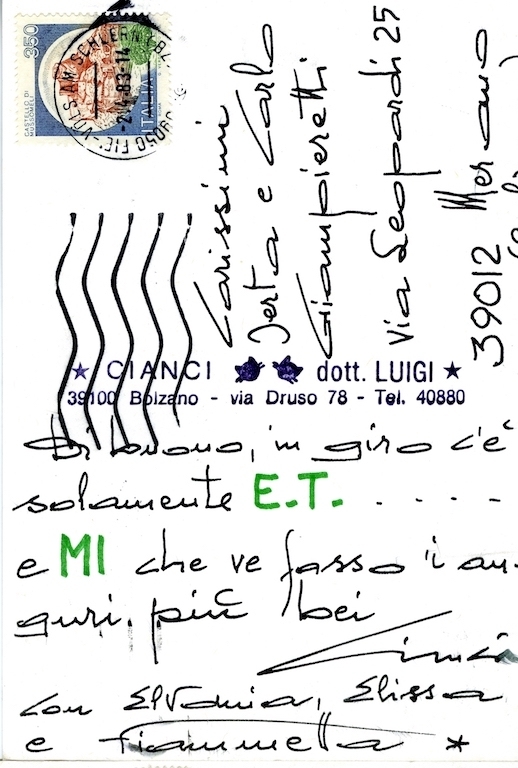 350
CASTELLO DI MUSSOMELI
ITALIA
39050 FIE'-VOLS AM SCHLERN (BZ)
83-14
Carissimi
Jerta e Carlo
Giampieretti
Via Leopardi 25
39012 Merano
★ CIANCI dott. LUIGI ★
39100 Bolzano - via Druso 78 - Tel. 40880
Di buono, in giro c'è
solamente E.T. . . . .
e MI che ve fasso i au-
guri più bei
con Elvania, Elissa
e Fiammetta *